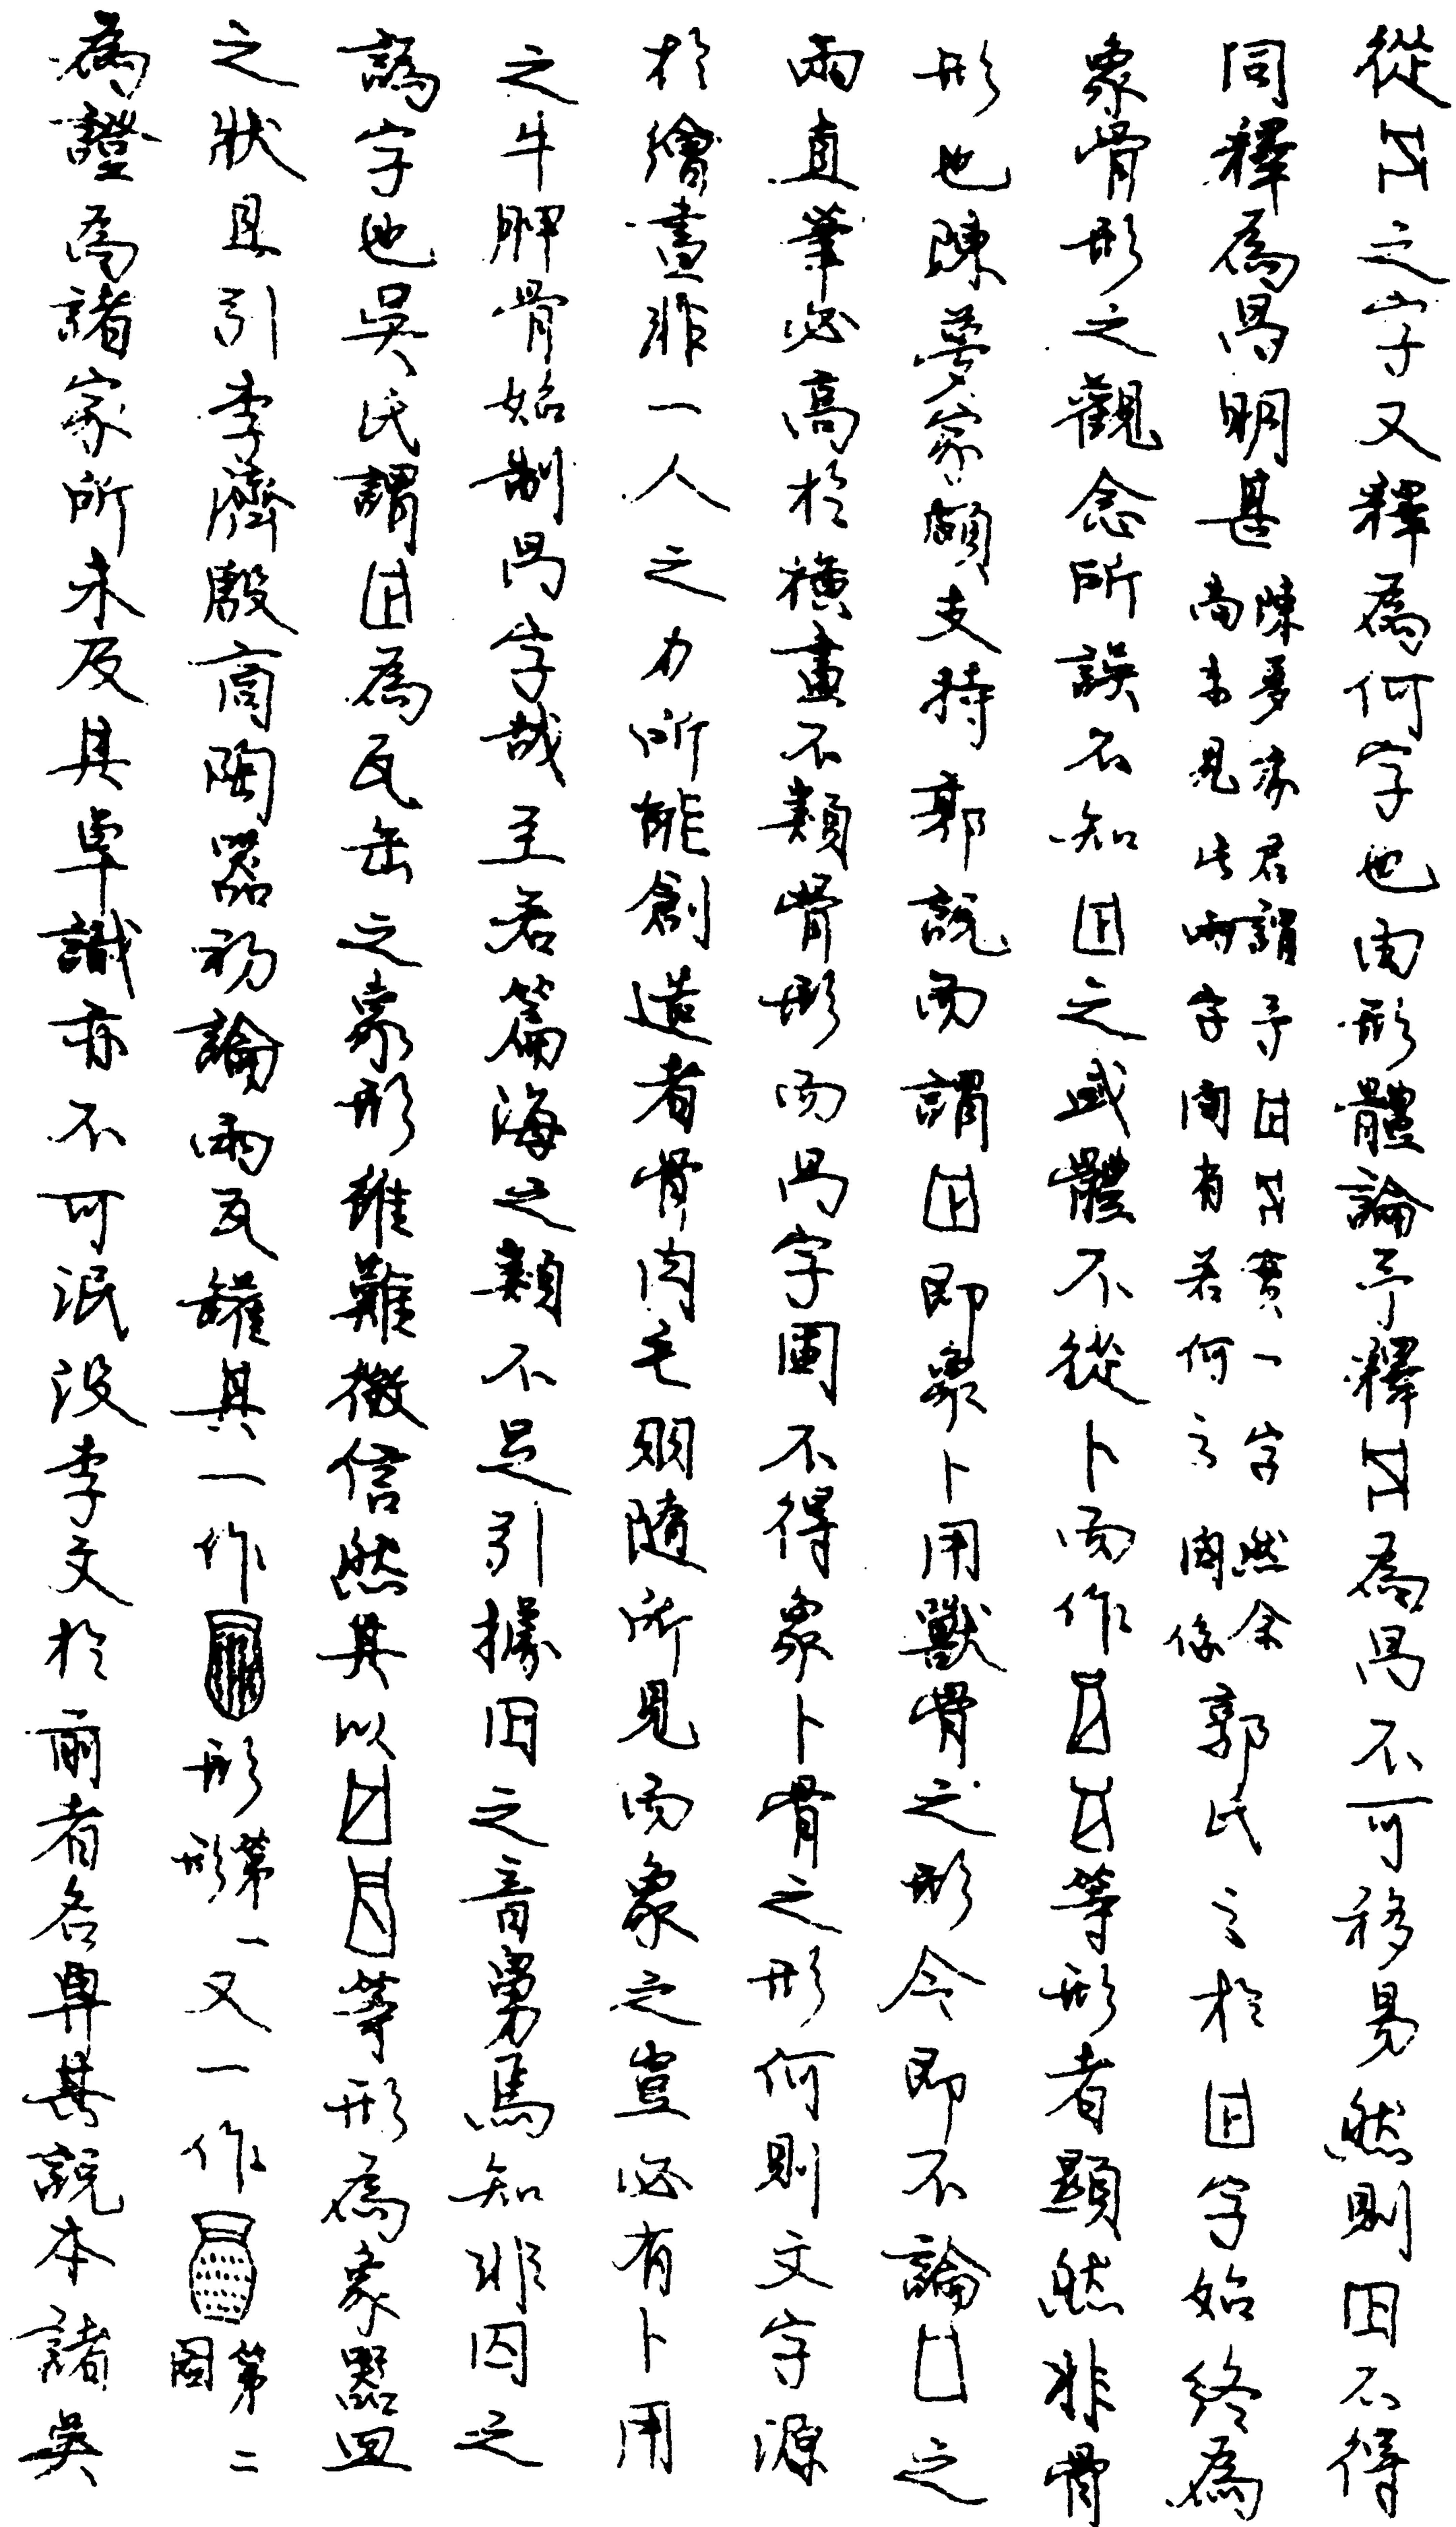 從之字又釋為何字也由形體論予釋為咼不可移易然則囙不得
同釋為咼明甚陳夢家君謂予實一字然余尚未見此兩字間有若何之關係郭氏之於字始終為
象骨形之觀念所誤不知之或體不從卜而作等形者顯然非骨
形也陳夢家頗支持郭說而謂即象卜用獸骨之形今即不論之
兩直筆必高於橫畫不類骨形而咼字固不得象卜骨之形何則文字源
於繪畫非一人之力所能創造者骨肉毛羽隨所見而象之豈必有卜用
之牛胛骨始制咼字哉至若篇海之類不足引據囙之音舅焉知非囚之
譌字也吳氏謂為瓦缶之象形雖難徵信然其以等形為象器皿
之狀且引李濟殷商陶器初論兩瓦罐其一作形第一形又一作第二圖
為證為諸家所未及其卓識亦不可泯沒李文於兩者名異其說本諸吳